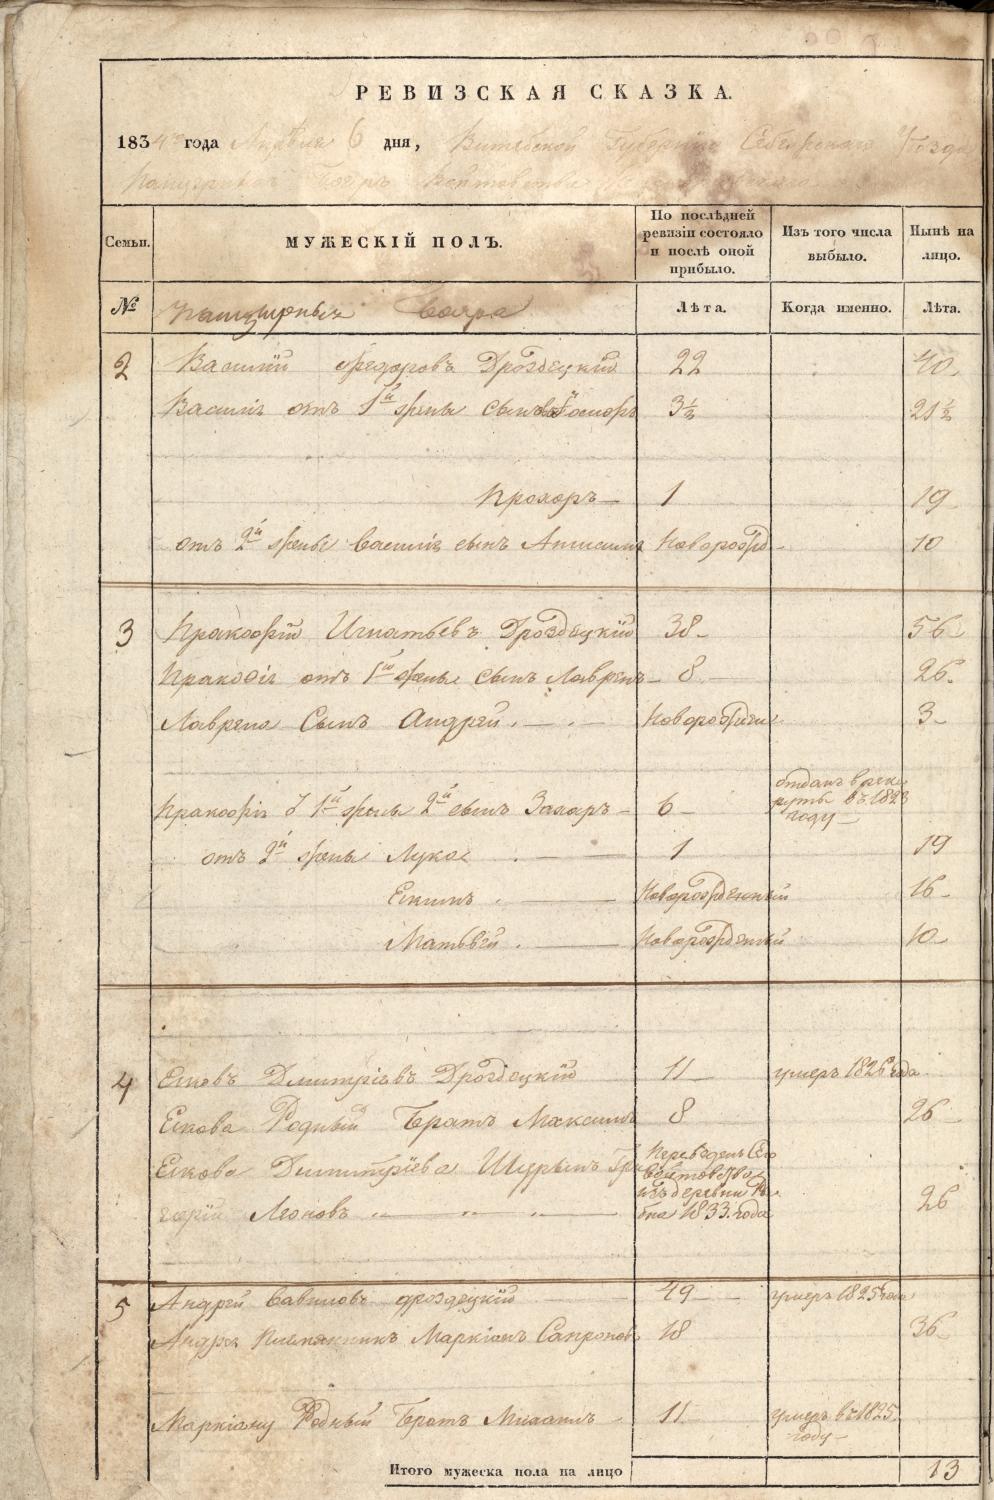 РЕВИЗСКАЯ СКАЗКА.
1834го года Апреля 6 дня, Витебской Губерніи Себежского уѣзда
Панцерныхъ Бояръ Войтовства
Семьи.
МУЖЕСКІЙ ПОЛЪ.
По послѣдней ревизіи состояло и послѣ оной прибыло.
Изъ того числа выбыло.
Нынѣ на лицо.
№ Панцырныхъ Бояръ Лѣта. Когда именно. Лѣта.
2 Василій Федоровъ Дроздецкій 22 40
Василія отъ 1й жены сынъ 3½ 21½
Прохоръ 1 19
отъ 2й жены Василія сынъ Новорожд 10
3 Пракофій Игнатьевъ Дроздецкій 38 56
Пракофія отъ 1й жены сынъ Лаврен 8 26
Лаврена Сынъ Андрей Новорожден 3
Пракофія 1й жены 2й сынъ Захаръ 6 отданъ в рекруты въ 1823 году
отъ 2й жены Лука 1 19
Екимъ Новорожденный 16
Матвѣй Новорожденный 10
4 Дмитріевъ Дроздецкій 11 умеръ 1826 года
Родный Братъ Максимъ 8 26
Дмитріева Шурынъ Гри
горій Леоновъ Переведенъ Сего Войтовства изъ деревни 1833. года 26
5 Андрей Вавиловъ Дроздецкій 49 умеръ 1825 года
Андрея Племянникъ Маркіанъ Сапроновъ 18 36
Маркіану Родный Братъ 11 умеръ въ 1825 году
Итого мужеска пола на лицо 13